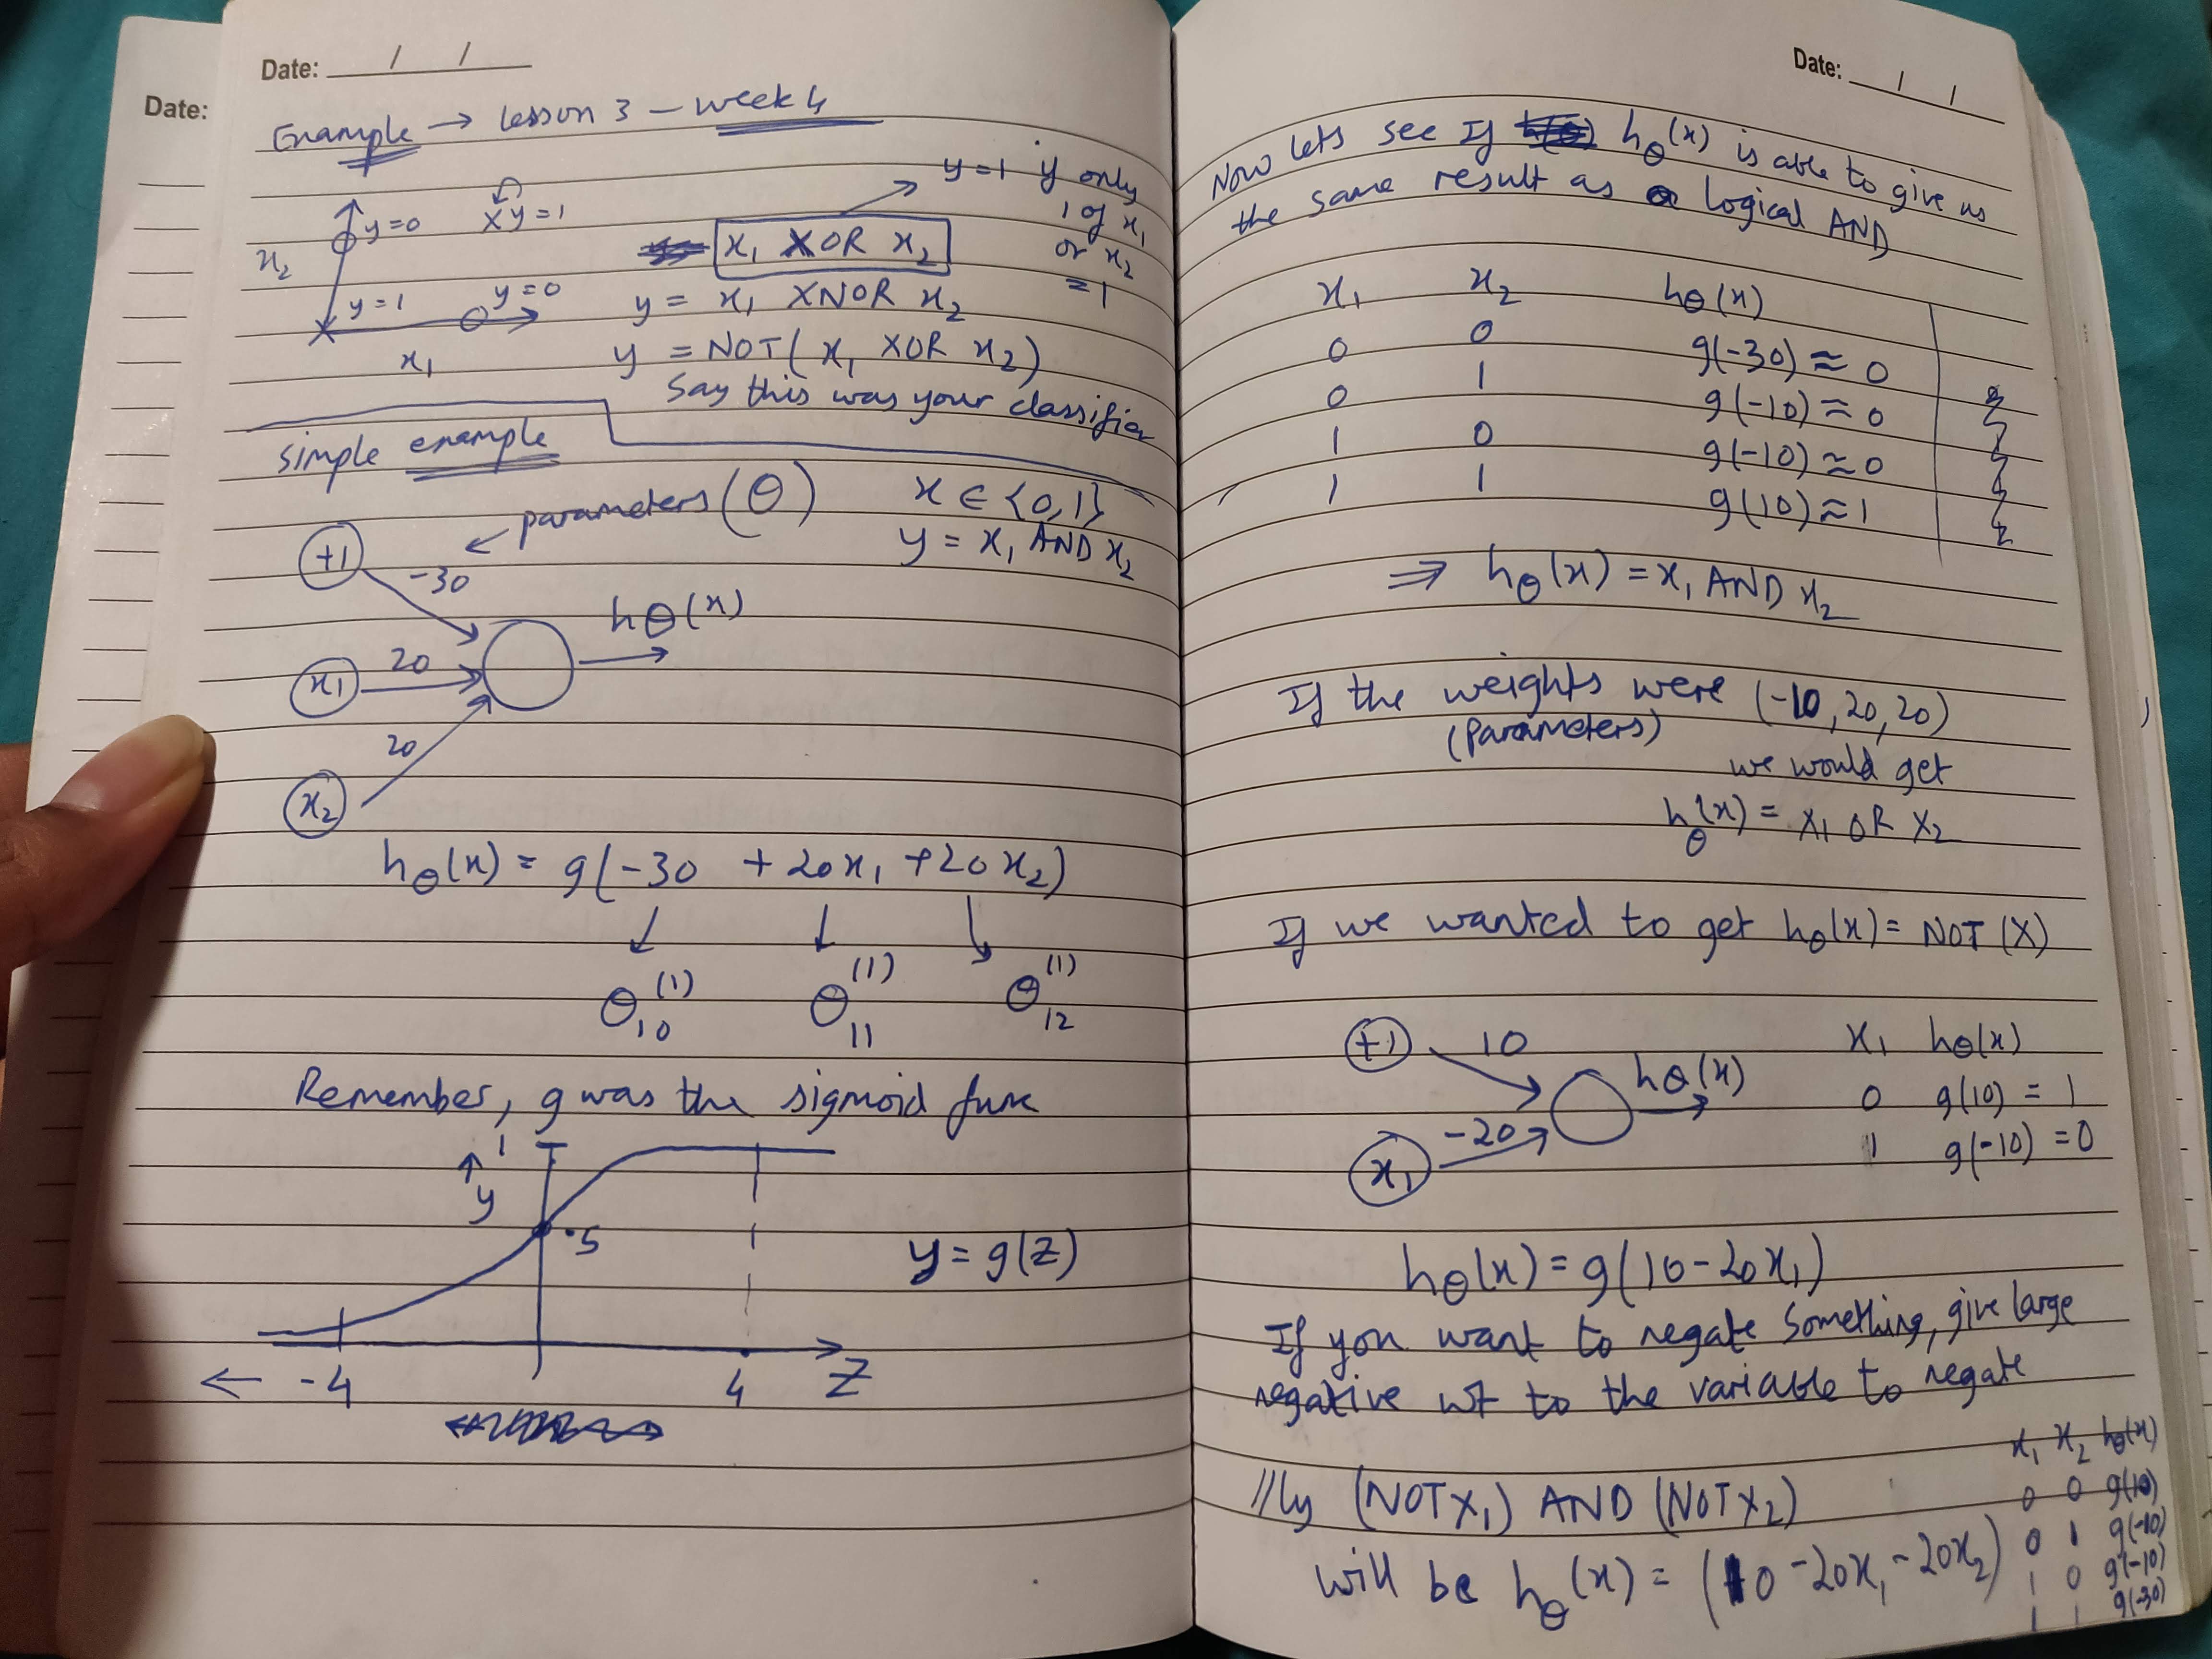 Date: / /
Date:
Example → Lesson 3 - Week 4
y=0 X y=1
x₂
y=1 y=0
x₁
y=1 if only
1 of x₁
or x₂
=1
x₁ XOR x₂
y = x₁ XNOR x₂
y = NOT( x₁ XOR x₂)
Say this was your classifier
Simple example
← parameters (θ)
x ∈ {0,1}
y = x₁ AND x₂
+1
-30
x₁
20
x₂
20
hθ(x)
hθ(x) = g(-30 + 20x₁ + 20x₂)
θ₁₀⁽¹⁾ θ₁₁⁽¹⁾ θ₁₂⁽¹⁾
Remember, g was the sigmoid func
1
↑ y
.5
y = g(z)
← -4 4 Z
Date: / /
Now lets see If hθ(x) is able to give us
the same result as Logical AND
x₁ x₂ hθ(x)
0 0 g(-30) ≈ 0
0 1 g(-10) ≈ 0
1 0 g(-10) ≈ 0
1 1 g(10) ≈ 1
⇒ hθ(x) = x₁ AND x₂
If the weights were (-10, 20, 20)
(Parameters)
we would get
hθ(x) = x₁ OR x₂
If we wanted to get hθ(x) = NOT (X)
+1 10
x₁ -20
hθ(x)
x₁ hθ(x)
0 g(10) = 1
1 g(-10) = 0
hθ(x) = g(10-20x₁)
If you want to negate Something, give large
negative wt to the variable to negate
//ly (NOT X₁) AND (NOT X₂)
will be hθ(x) = (10 -20x₁ -20x₂)
x₁ x₂ hθ(x)
0 0 g(10)
0 1 g(-10)
1 0 g(-10)
1 1 g(-30)